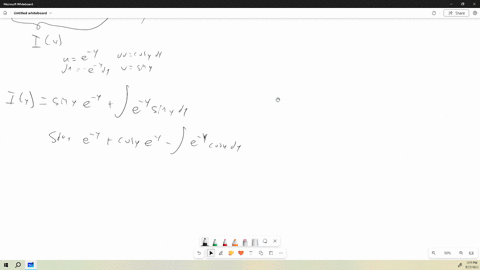 Microsoft Whiteboard
Untitled whiteboard
Share
I(y)
u = e^-y dv = cosy dy
du = -e^-y dy v = sin y
I(y) = sin y e^-y + ∫ e^-y sin y dy
e^-y + cosy e^-y - ∫ e^-y cosy dy